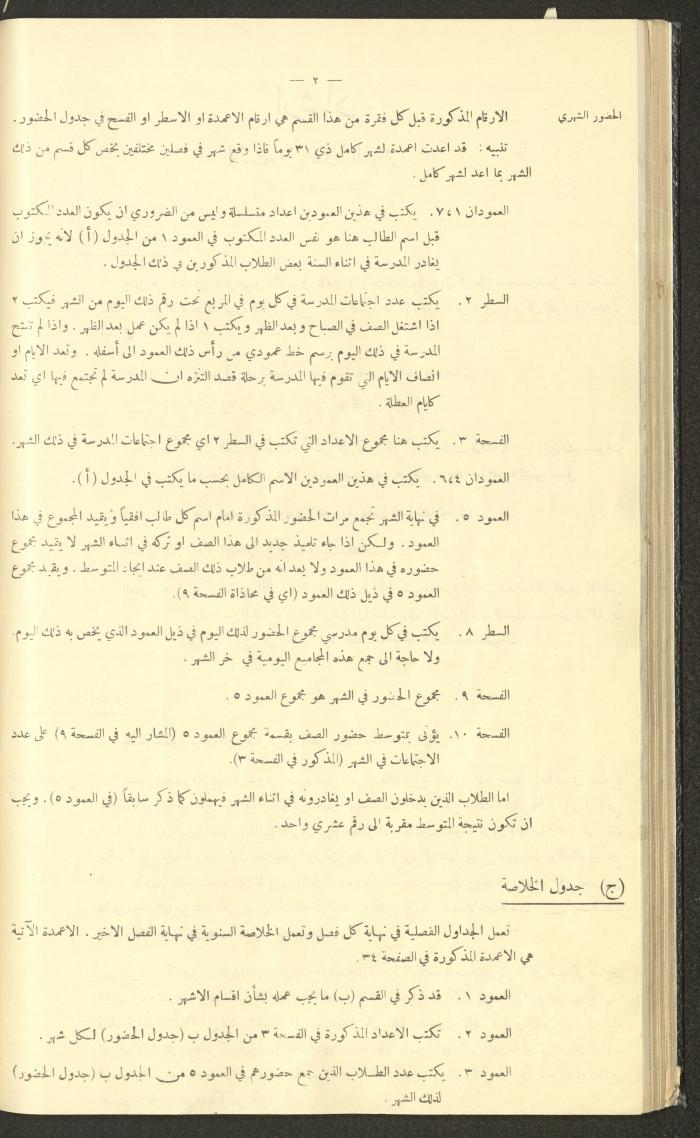 — ٢ —
الحضور الشهري
الارقام المذكورة قبل كل فقرة من هذا القسم هي ارقام الاعمدة او الاسطر او الفسح في جدول الحضور.
تنبيه: قد اعدت اعمدة لشهر كامل ذي ٣١ يوماً فاذا وقع شهر في فصلين مختلفين يخص كل قسم من ذلك
الشهر بما اعد لشهر كامل.
العمودان ١،٧. يكتب في هذين العمودين اعداد متسلسلة وليس من الضروري ان يكون العدد المكتوب
قبل اسم الطالب هنا هو نفس العدد المكتوب في العمود ١ من الجدول (أ) لانه يجوز ان
يغادر المدرسة في اثناء السنة بعض الطلاب المذكورين في ذلك الجدول.
السطر ٢. يكتب عدد اجتماعات المدرسة في كل يوم في المربع تحت رقم ذلك اليوم من الشهر فيكتب ٢
اذا اشتغل الصف في الصباح وبعد الظهر ويكتب ١ اذا لم يكن عمل بعد الظهر. واذا لم تفتح
المدرسة في ذلك اليوم يرسم خط عمودي من رأس ذلك العمود الى أسفله. وتعد الايام او
انصاف الايام التي تقوم فيها المدرسة برحلة قصد التنزه ان المدرسة لم تجتمع فيها اي تعد
كايام العطلة.
الفسحة ٣. يكتب هنا مجموع الاعداد التي تكتب في السطر ٢ اي مجموع اجتماعات المدرسة في ذلك الشهر.
العمودان ٤،٦. يكتب في هذين العمودين الاسم الكامل بحسب ما يكتب في الجدول (أ).
العمود ٥. في نهاية الشهر تجمع مرات الحضور المذكورة امام اسم كل طالب افقياً ويقيد المجموع في هذا
العمود. ولكن اذا جاء تلميذ جديد الى هذا الصف او تركه في اثناء الشهر لا يقيد مجموع
حضوره في هذا العمود ولا يعد انه من طلاب ذلك الصف عند ايجاد المتوسط. ويقيد مجموع
العمود ٥ في ذيل ذلك العمود (اي في محاذاة الفسحة ٩).
السطر ٨. يكتب في كل يوم مدرسي مجموع الحضور لذلك اليوم في ذيل العمود الذي يخص به ذلك اليوم.
ولا حاجة الى جمع هذه المجاميع اليومية في خر الشهر.
الفسحة ٩. مجموع الحضور في الشهر هو مجموع العمود ٥.
الفسحة ١٠. يؤتى بمتوسط حضور الصف بقسمة مجموع العمود ٥ (المشار اليه في الفسحة ٩) على عدد
الاجتماعات في الشهر (المذكور في الفسحة ٣).
اما الطلاب الذين يدخلون الصف او يغادرونه في اثناء الشهر فيهملون كما ذكر سابقاً (في العمود ٥). ويجب
ان تكون نتيجة المتوسط مقربة الى رقم عشري واحد.
(ج) جدول الخلاصة
تعمل الجداول الفصلية في نهاية كل فصل وتعمل الخلاصة السنوية في نهاية الفصل الاخير. الاعمدة الآتية
هي الاعمدة المذكورة في الصفحة ٣٤.
العمود ١. قد ذكر في القسم (ب) ما يجب عمله بشأن اقسام الاشهر.
العمود ٢. تكتب الاعداد المذكورة في الفسحة ٣ من الجدول ب (جدول الحضور) لكل شهر.
العمود ٣. يكتب عدد الطلاب الذين جمع حضورهم في العمود ٥ من الجدول ب (جدول الحضور)
لذلك الشهر.